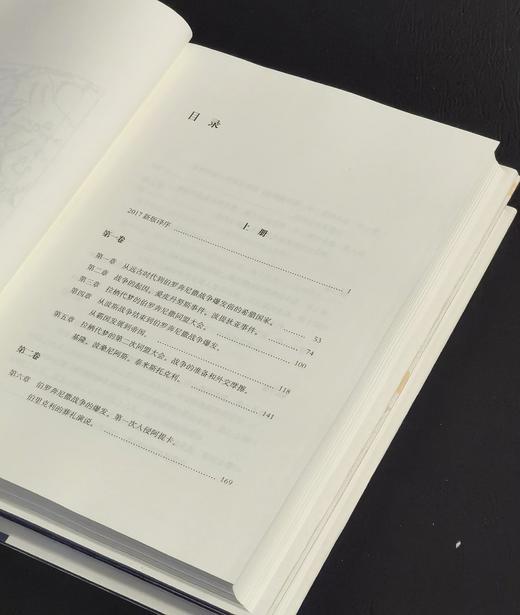 目 录
上 册
2017新版译序 1
第一卷
第一章 从远古时代到伯罗奔尼撒战争爆发前的希腊国家。 53
第二章 战争的起因。爱皮丹努斯事件。波提狄亚事件。 74
第三章 拉栖代梦的伯罗奔尼撒同盟大会。 100
第四章 从波斯战争结束到伯罗奔尼撒战争爆发。
从霸国发展到帝国。 118
第五章 拉栖代梦的第二次同盟大会。战争的准备和外交摩擦。
基隆。波桑尼阿斯。泰米斯托克利。 141
第二卷
第六章 伯罗奔尼撒战争的爆发。第一次入侵阿提卡。
伯里克利的葬礼演说。 169